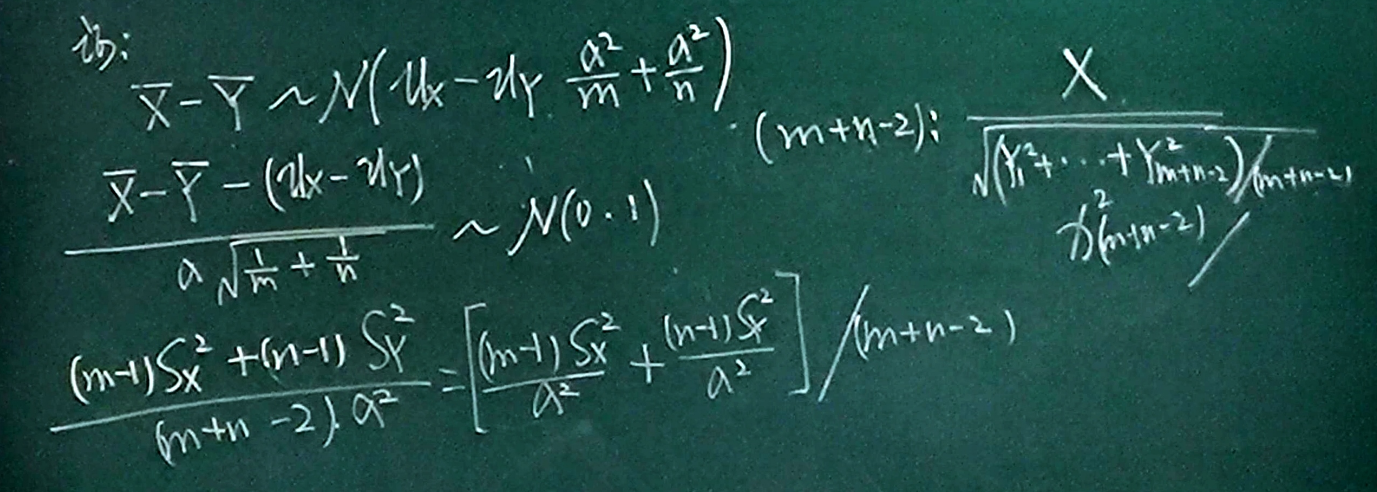 证:
X̄-Ȳ ~ N(μx-μY a²/m + a²/n)
(X̄-Ȳ-(μx-μY)) / (a√(1/m + 1/n)) ~ N(0.1)
((m-1)Sx²+(n-1)SY²) / ((m+n-2).a²) = [(m-1)Sx²/a² + (n-1)SY²/a²] / (m+n-2)
(m+n-2): X / √((Y₁²+···+Y²m+n-2)/(m+n-2))
(m+n-2)/